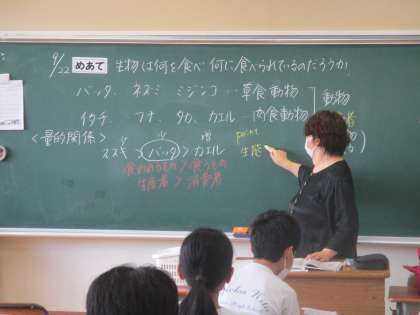 9/22 めあて 生物は何を食べ何に食べられているのだろうか!
バッタ、ネズミ ミジンコ…草食動物
イタチ、フナ、タカ、カエル…肉食動物
動物
者
<量的関係> 少 増 point
ススキ>バッタ>カエル 生態
食われるもの>食うもの
生産者>消費者